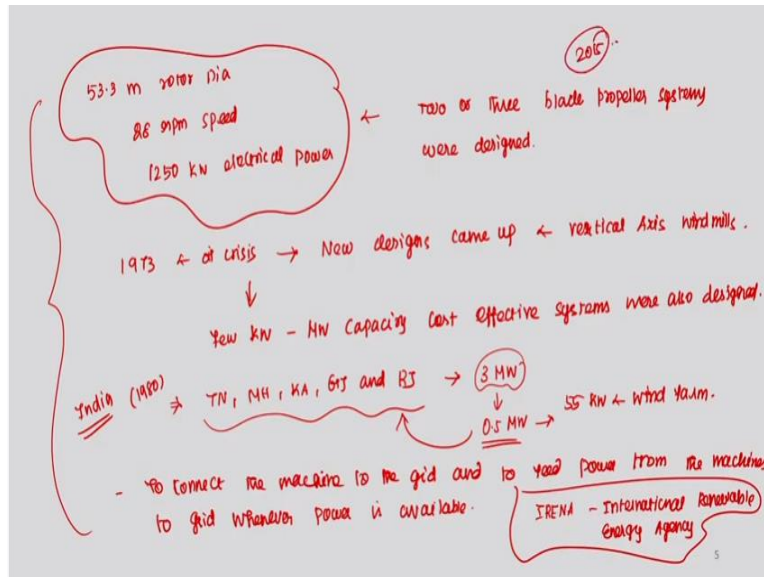 2015..
53.3 m rotor Dia
28 rpm speed
1250 kw electrical power
← Two or three blade propeller systems
were designed.
1973 ← oil crisis → New designs came up ← vertical Axis windmills.
↓
Few kW - MW capacity cost effective systems were also designed.
India (1980) ⇒ TN, MH, KA, GJ and RJ → 3 MW
↓
0.5 MW → 55 kW ← wind farm.
- To connect the machine to the grid and to feed power from the machines
to grid whenever power is available.
IRENA - International Renewable
Energy Agency
5